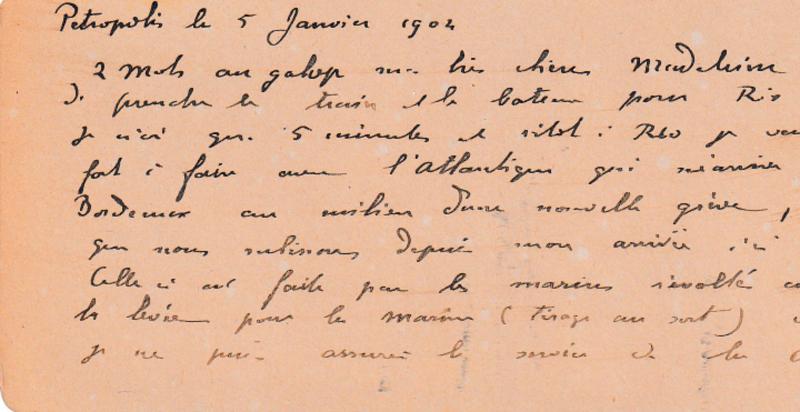 Petropolis le 5 Janvier 1904
2 mots au galop ma très chère Madeleine
de prendre le train et le bateau pour Rio
je n'ai que 5 minutes et sitôt à Rio je
fort à faire avec l'Atlantique qui m'arrive
Bordeaux au milieu d'une nouvelle grève,
que nous subissons depuis mon arrivée ici
Celle ci est faite par les marins révoltés
la levée pour la marine (tirage au sort)
je ne puis assurer le service de la